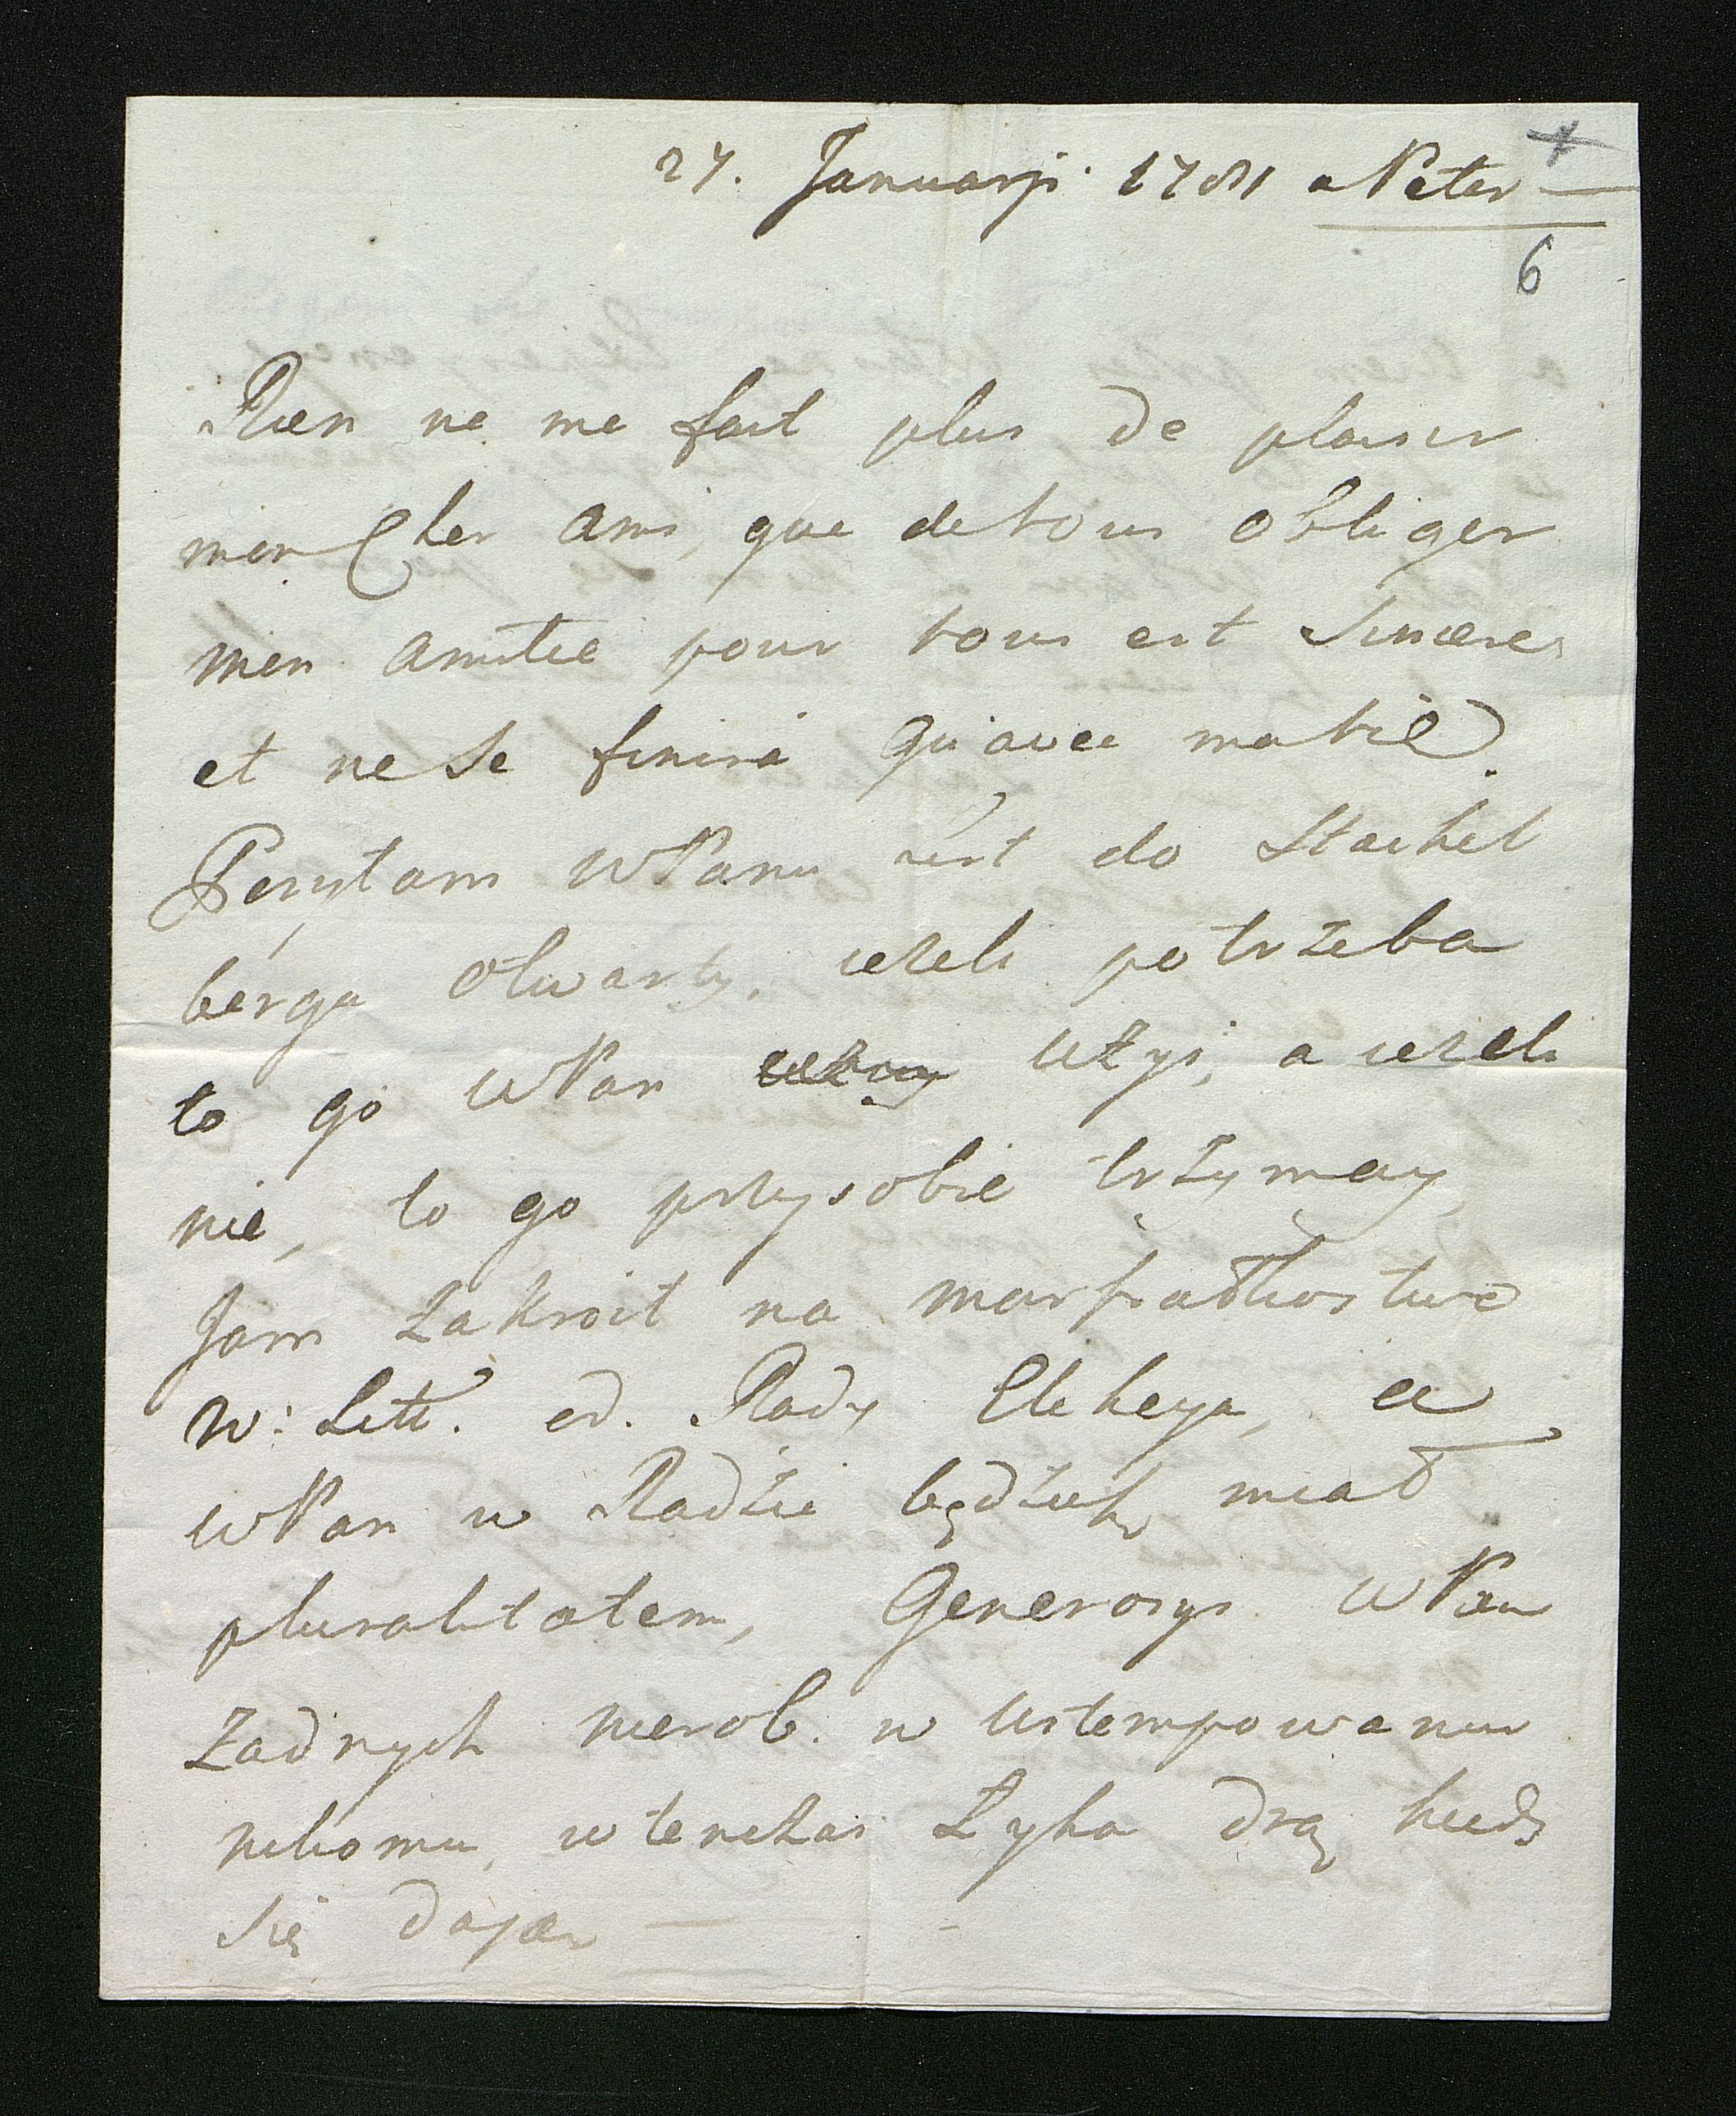 27. Januarji 1781 a Peter
6
Rien ne me fait plus de plaisir
mon Cher ami, que de vous obliger
mon amitié pour vous est sincere
et ne se finira qu'avec ma vie.
Posyłam WPanu list do Stachel
berga otwarty, ieżeli potrzeba
to go WPan użyi, a ieżeli
nie, to go przy sobie trzymay,
Jam zakroił na marszałkostwo
W: Litt. od. Rady Elekcya, a
WPan w Radzie będziesz miał
pluralitatem, Generozyi WPan
żadnych nierob. w ustempowaniu
nikomu, wtenczas łyka drą kiedy
się daią